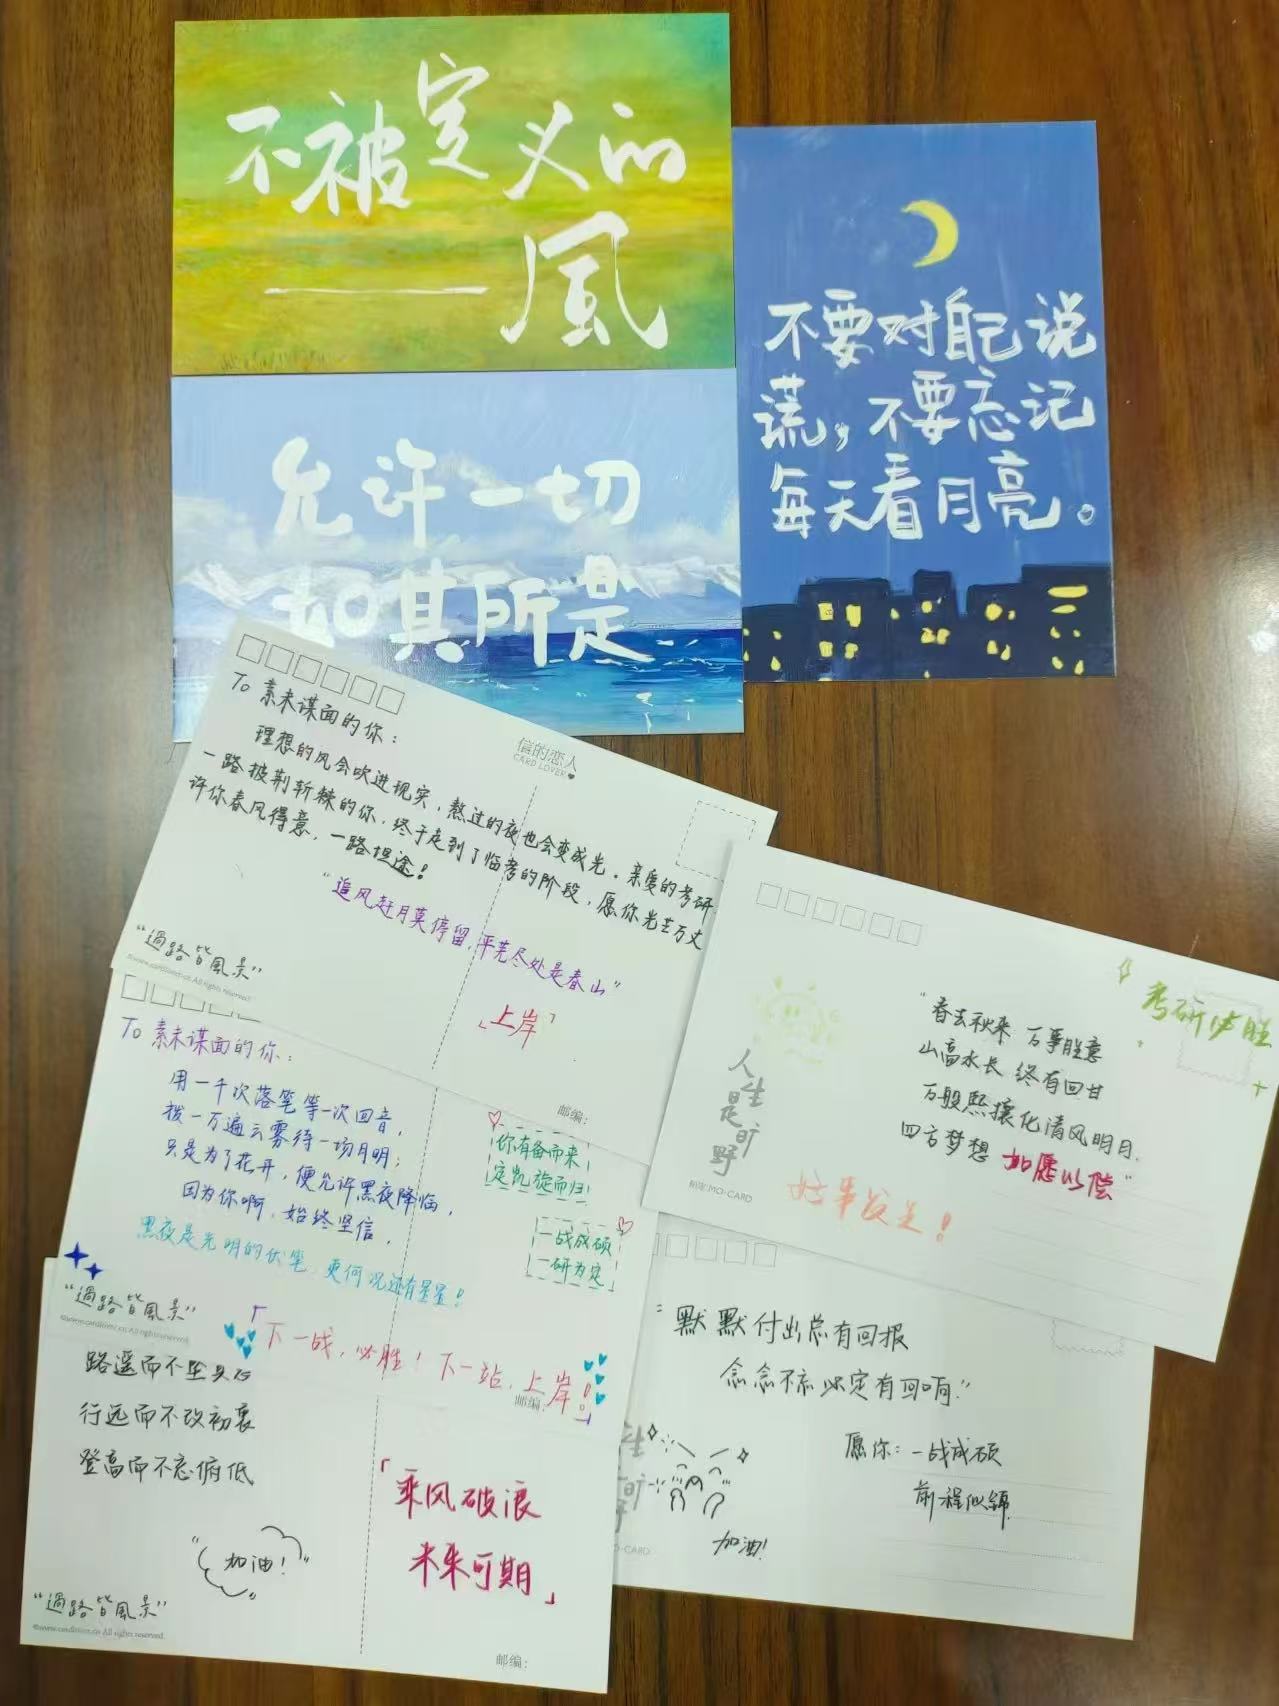 不被定义的
——風
不要对自己说
谎，不要忘记
每天看月亮。
允许一切
如其所是
To 素未谋面的你：
信的恋人
CARD LOVER
理想的风会吹进现实，熬过的夜也会变成光。亲爱的考研
一路披荆斩棘的你，终于走到了临考的阶段，愿你光芒万丈
许你春风得意，一路坦途！
“追风赶月莫停留，平芜尽处是春山”
「上岸」
“過路皆風景”
©www.cardlover.cn All rights reserved.
邮编：
考研必胜
“春去秋来 万事胜意
山高水长 终有回甘
万般熙攘化清风明月
四方梦想 如愿以偿”
好事发生！
人生是旷野
MO-CARD
To 素未谋面的你：
用一千次落笔等一次回音，
拨一万遍云雾待一场月明；
只是为了花开，便允许黑夜降临，
因为你啊，始终坚信，
黑夜是光明的伏笔，更何况还有星星！
你有备而来
定凯旋而归
一战成硕
一研为定
「下一战，必胜！下一站，上岸！」
“過路皆風景”
©www.cardlover.cn All rights reserved.
邮编：
路遥而不坠其志
行远而不改初衷
登高而不忘俯低
“加油！”
「乘风破浪
未来可期」
“過路皆風景”
©www.cardlover.cn All rights reserved.
邮编：
“默默付出总有回报
念念不忘必定有回响”
愿你：一战成硕
前程似锦
加油！
生
旷
野
O-CARD